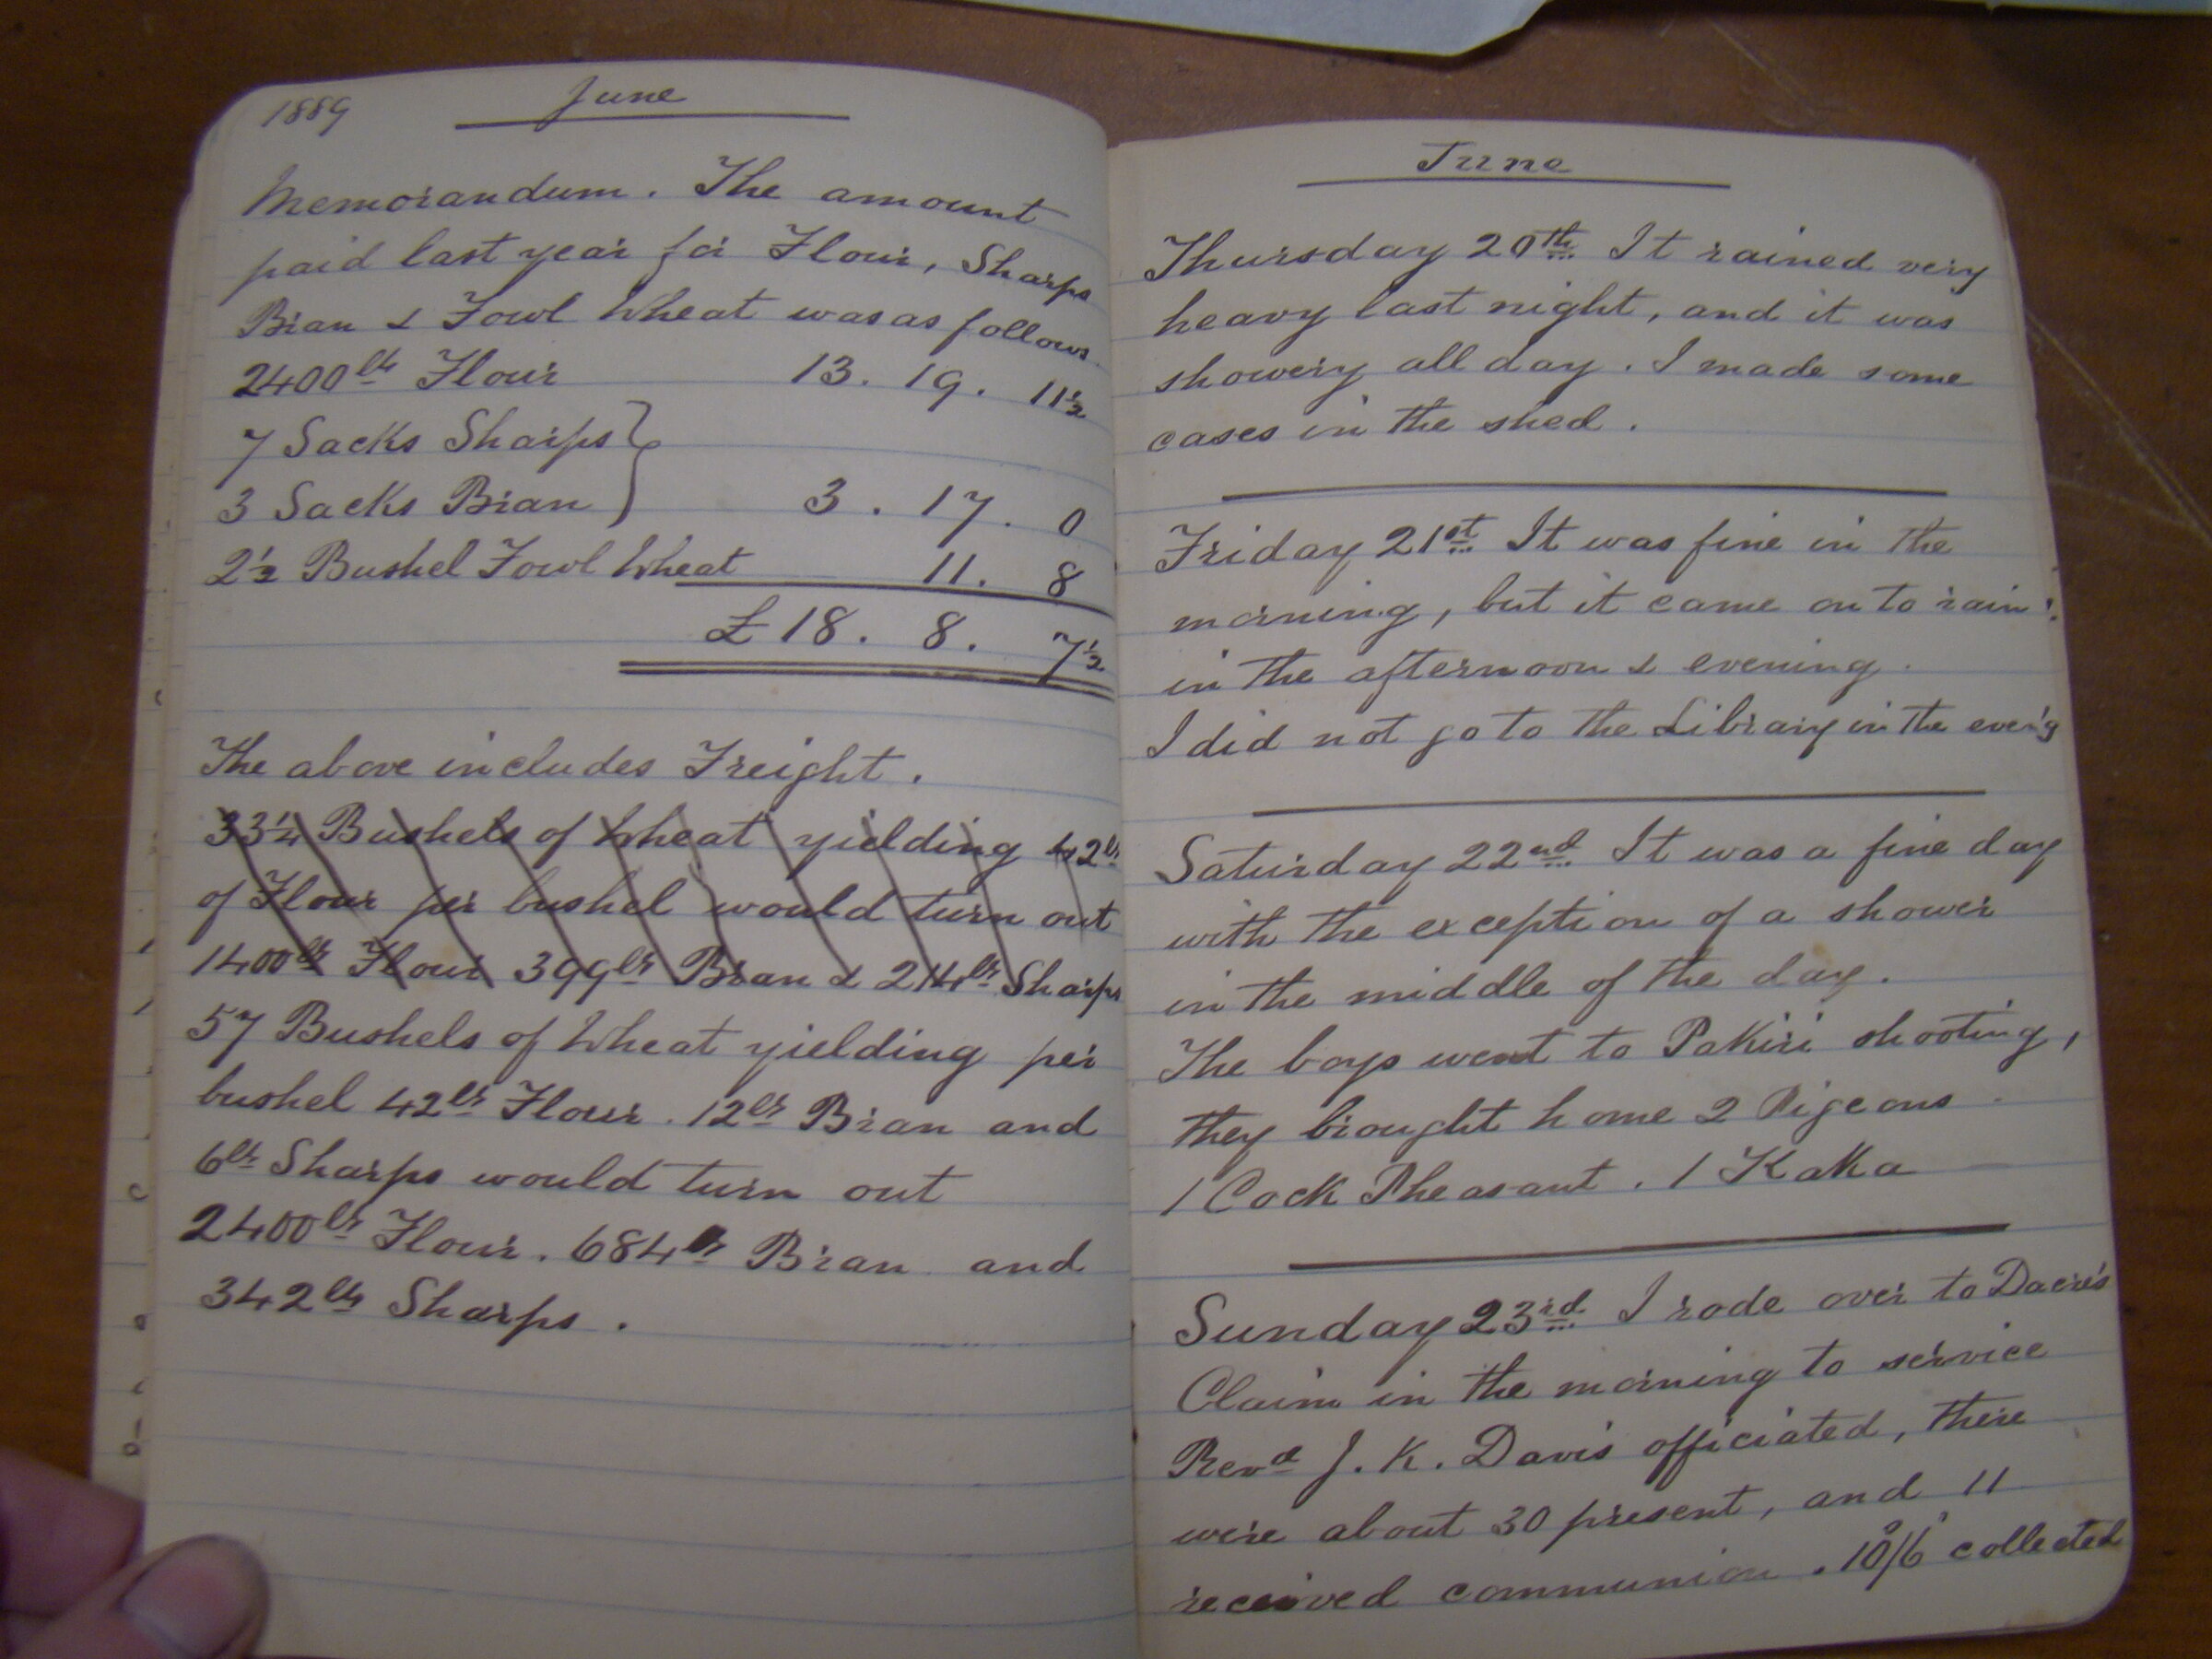 1889 June
Memorandum. The amount
paid last year for Flour, Sharps
Bran & Fowl Wheat was as follows
2400lbs Flour 13. 19. 11½
7 Sacks Sharps }
3 Sacks Bran } 3. 17. 0
2½ Bushel Fowl Wheat 11. 8
£18. 8. 7½
The above includes Freight.
33¼ Bushels of Wheat yielding 42lbs
of Flour per bushel would turn out
1400lbs Flour 399lbs Bran & 214lbs Sharps
57 Bushels of Wheat yielding per
bushel 42lbs Flour. 12lbs Bran and
6lbs Sharps would turn out
2400lbs Flour. 684lbs Bran and
342lbs Sharps.
June
Thursday 20th It rained very
heavy last night, and it was
showery all day. I made some
cases in the shed.
Friday 21st It was fine in the
morning, but it came on to rain
in the afternoon & evening.
I did not go to the Library in the even'g
Saturday 22nd It was a fine day
with the exception of a shower
in the middle of the day.
The boys went to Pakiri shooting,
they brought home 2 Pigeons.
1 Cock Pheasant. 1 Kaka
Sunday 23rd I rode over to Dacre's
Claim in the morning to service
Revd J. K. Davis officiated, there
were about 30 present, and 11
received communion. 10/6 collected